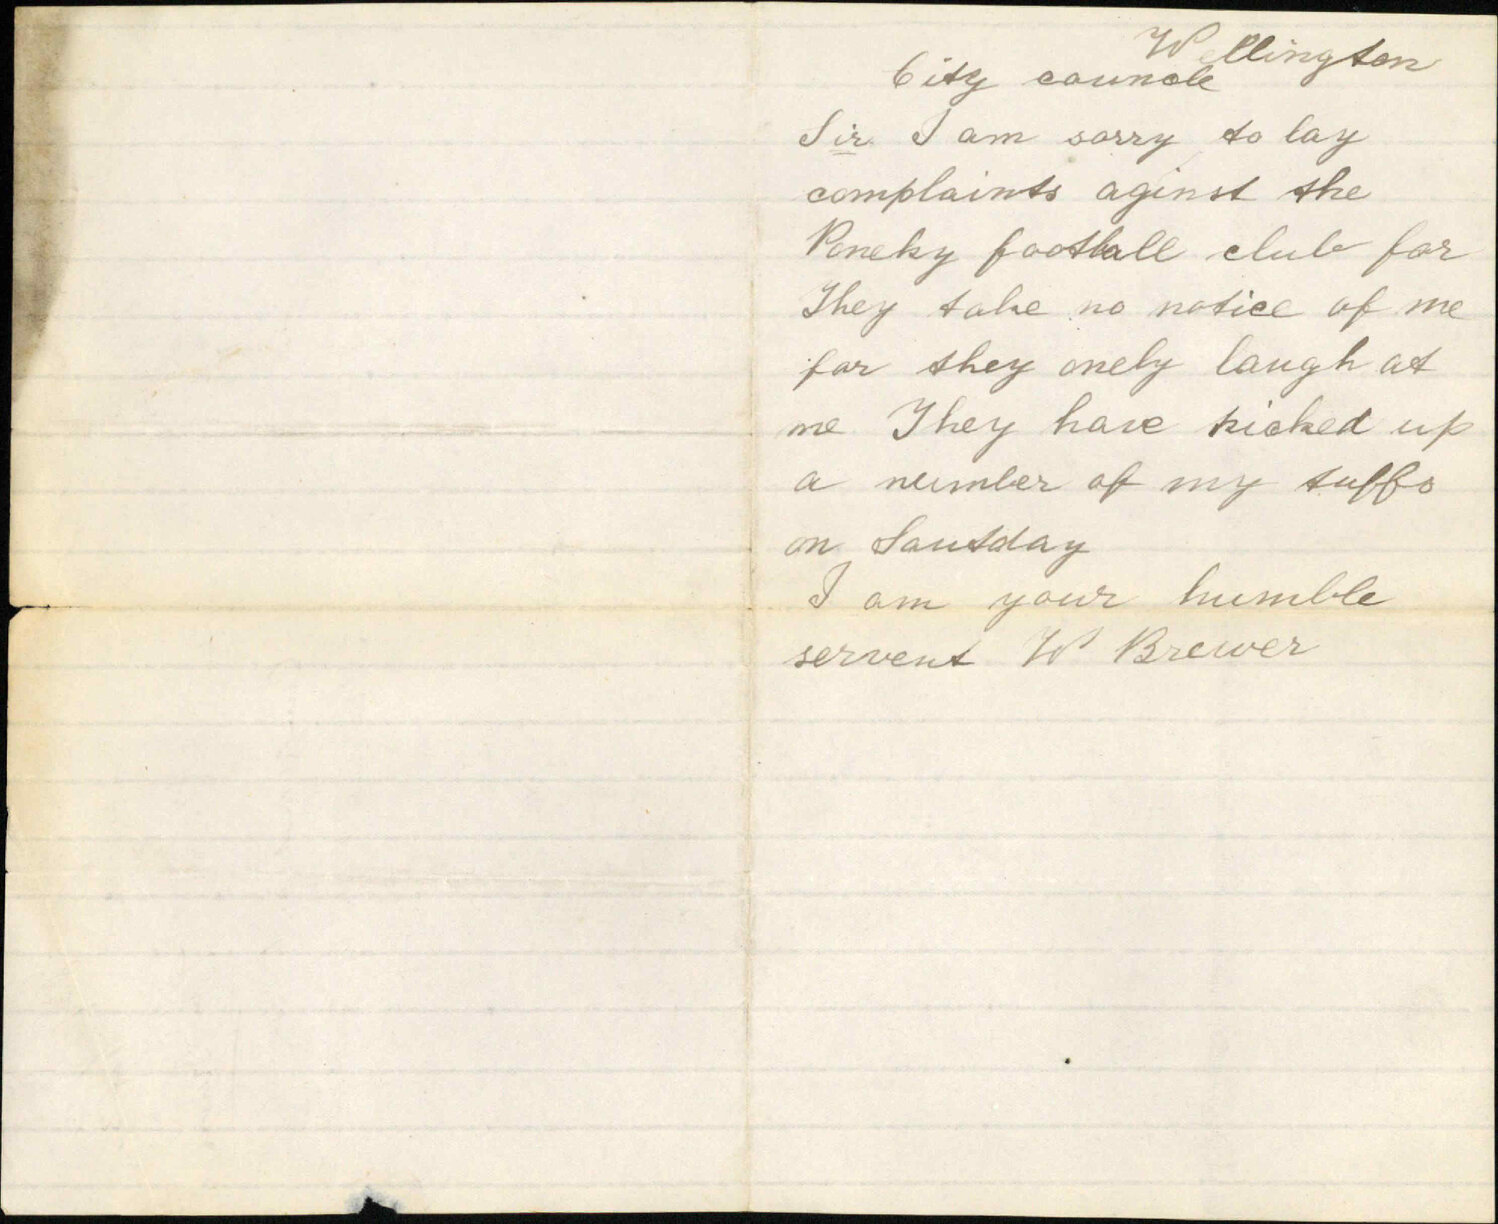 Wellington
City councle
Sir I am sorry to lay
complaints aginst the
Poneky football club for
They take no notice of me
for they onely laugh at
me They have kicked up
a number of my tuffs
on Sautday
I am your humble
servent W Brewer